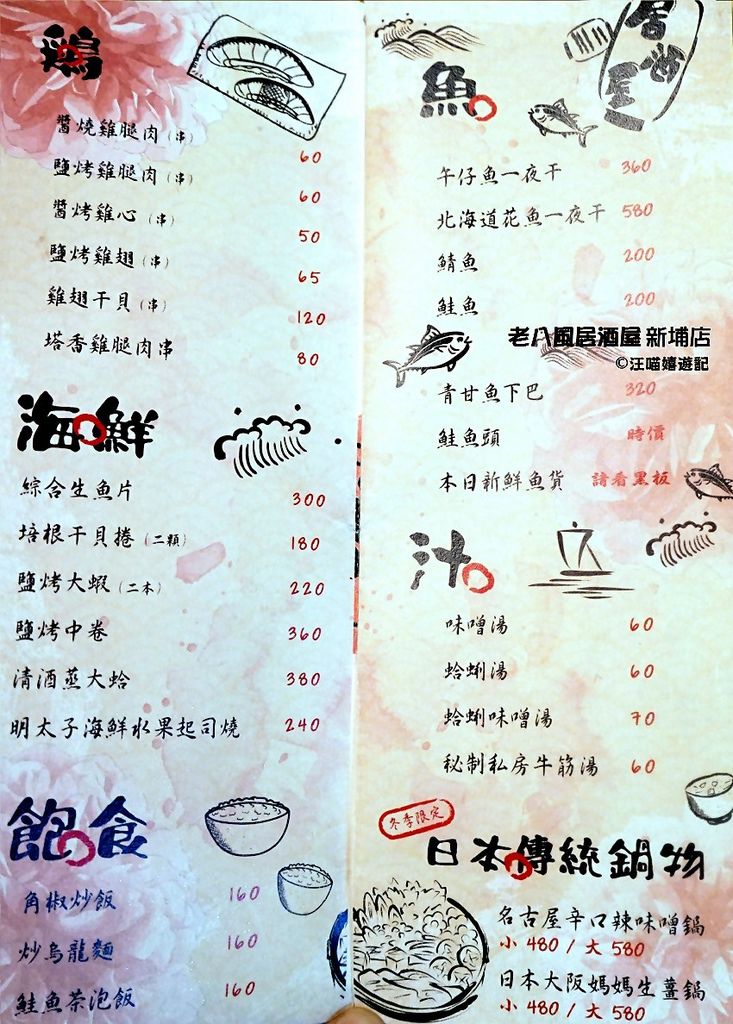 鶏
醬燒雞腿肉(串) 60
鹽烤雞腿肉(串) 60
醬烤雞心(串) 50
鹽烤雞翅(串) 65
雞翅干貝(串) 120
塔香雞腿肉串 80
海の鮮
綜合生魚片 300
培根干貝捲(二顆) 180
鹽烤大蝦(二本) 220
鹽烤中卷 360
清酒蒸大蛤 380
明太子海鮮水果起司燒 240
飽の食
角椒炒飯 160
炒烏龍麵 160
鮭魚茶泡飯 160
居酒屋
魚
午仔魚一夜干 360
北海道花魚一夜干 580
鯖魚 200
鮭魚 200
老八風居酒屋 新埔店
©汪喵嬉遊記
青甘魚下巴 320
鮭魚頭 時價
本日新鮮魚貨 請看黑板
汁
味噌湯 60
蛤蜊湯 60
蛤蜊味噌湯 70
秘制私房牛筋湯 60
冬季限定
日本の傳統鍋物
名古屋辛口辣味噌鍋
小 480 / 大 580
日本大阪媽媽生薑鍋
小 480 / 大 580